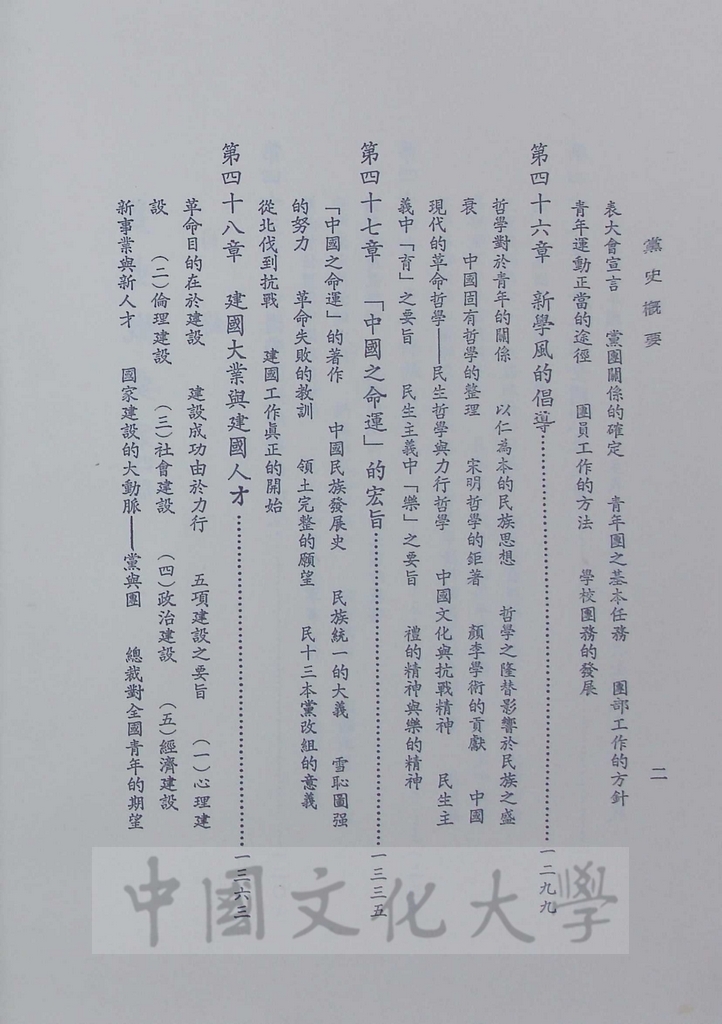 黨史概要
二
表大會宣言　黨團關係的確定　青年團之基本任務　團部工作的方針
青年運動正當的途徑　團員工作的方法　學校團務的發展
第四十六章　新學風的倡導……一二九九
哲學對於青年的關係　以仁為本的民族思想　哲學之隆替影響於民族之盛
衰　中國固有哲學的整理　宋明哲學的鉅著　顏李學術的貢獻　中國
現代的革命哲學——民生哲學與力行哲學　中國文化與抗戰精神　民生主
義中「育」之要旨　民生主義中「樂」之要旨　禮的精神與樂的精神
第四十七章　「中國之命運」的宏旨……一三三五
「中國之命運」的著作　中國民族發展史　民族統一的大義　雪恥圖强
的努力　革命失敗的教訓　領土完整的願望　民十三本黨改組的意義
從北伐到抗戰　建國工作眞正的開始
第四十八章　建國大業與建國人才……一三六三
革命目的在於建設　建設成功由於力行　五項建設之要旨　（一）心理建
設　（二）倫理建設　（三）社會建設　（四）政治建設　（五）經濟建設
新事業與新人才　國家建設的大動脈——黨與團　總裁對全國青年的期望
中國文化大學